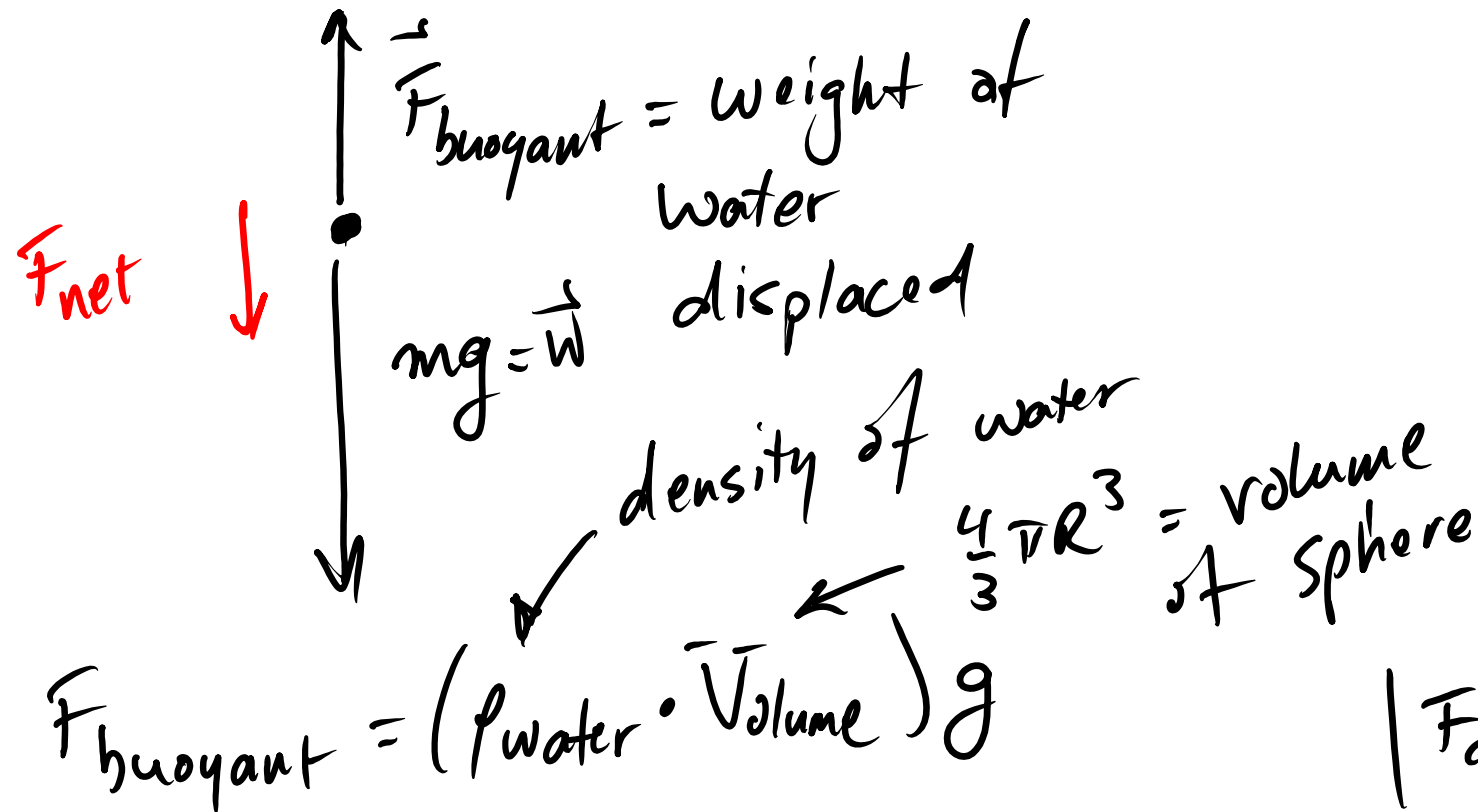 F⃗buoyant = weight of
water
displaced
Fnet
mg = w⃗
density of water
4/3 πR³ = volume
of sphere
Fbuoyant = (ρwater · Volume) g